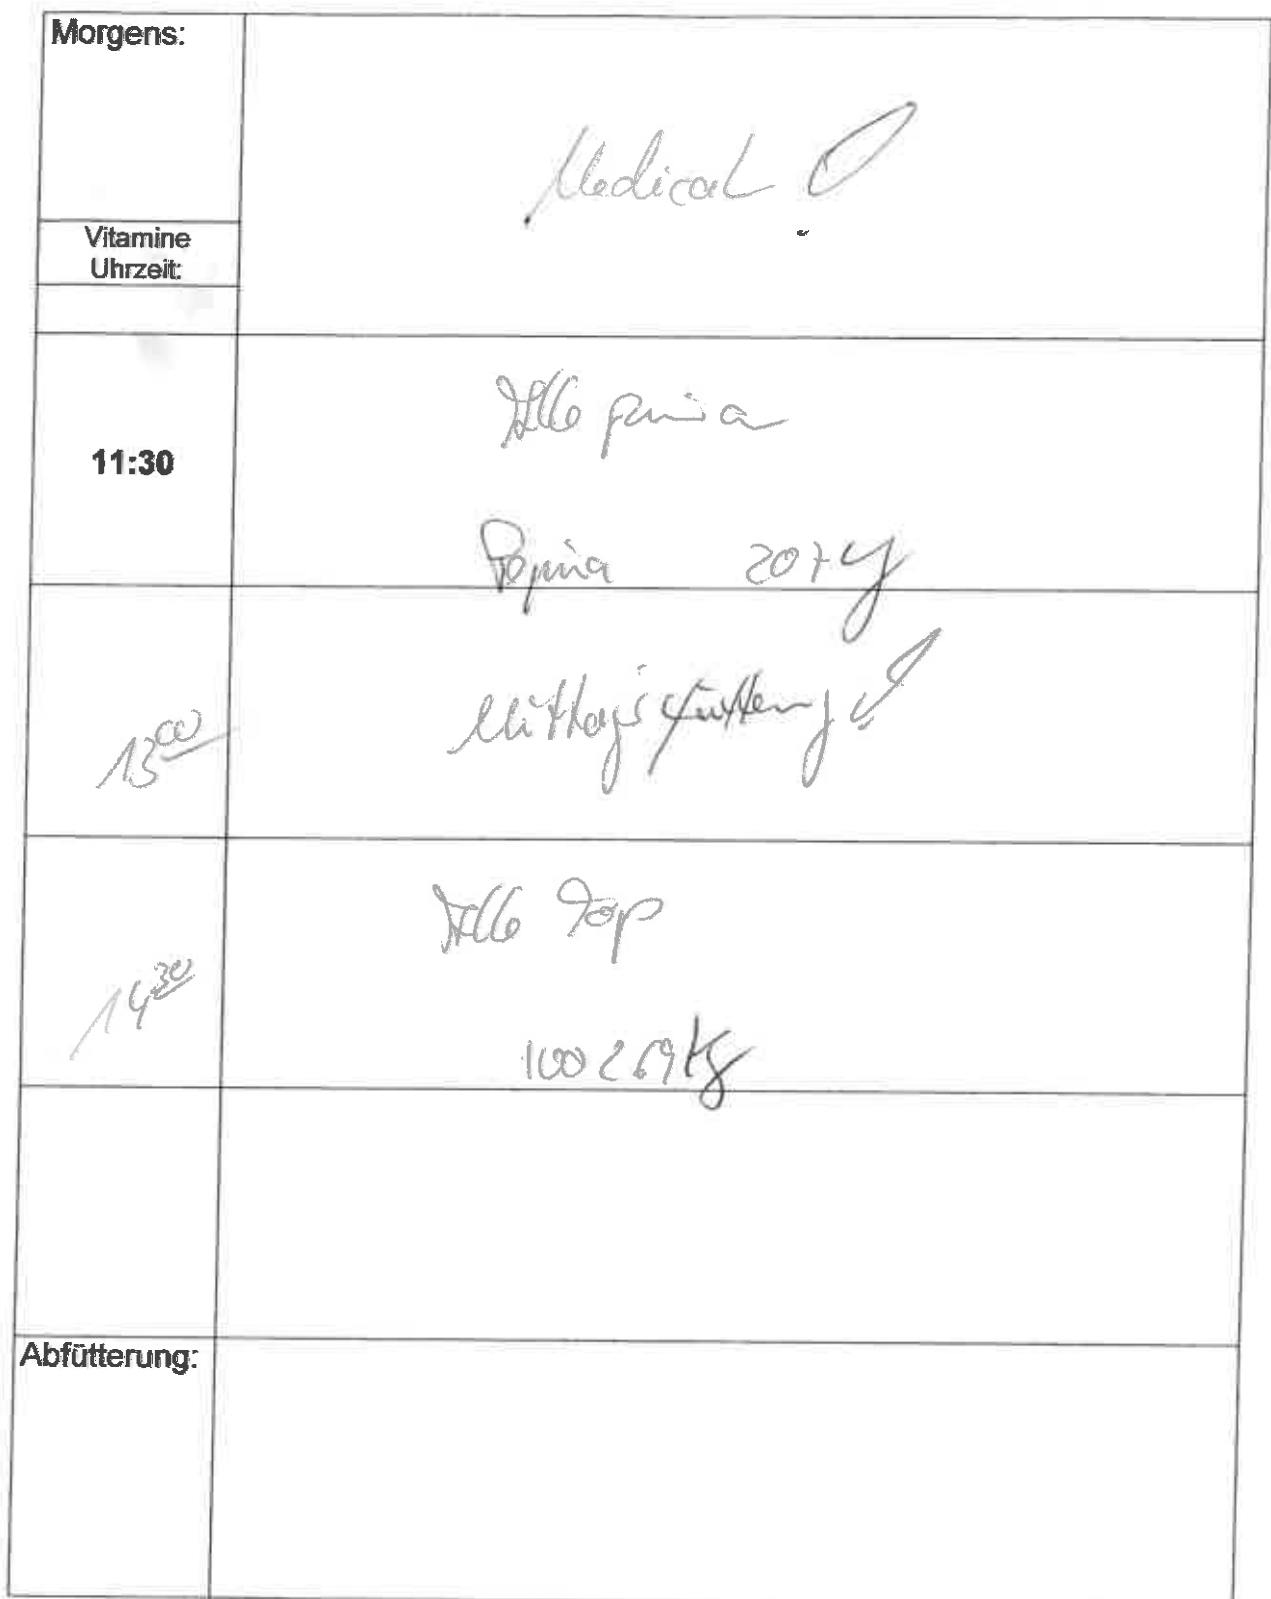 Morgens:
Medical
Vitamine
Uhrzeit:
11:30
Alle prima
Popina 207 kg
13 00
Mittagsfütterung
14 30
Alle Top
100269 kg
Abfütterung: